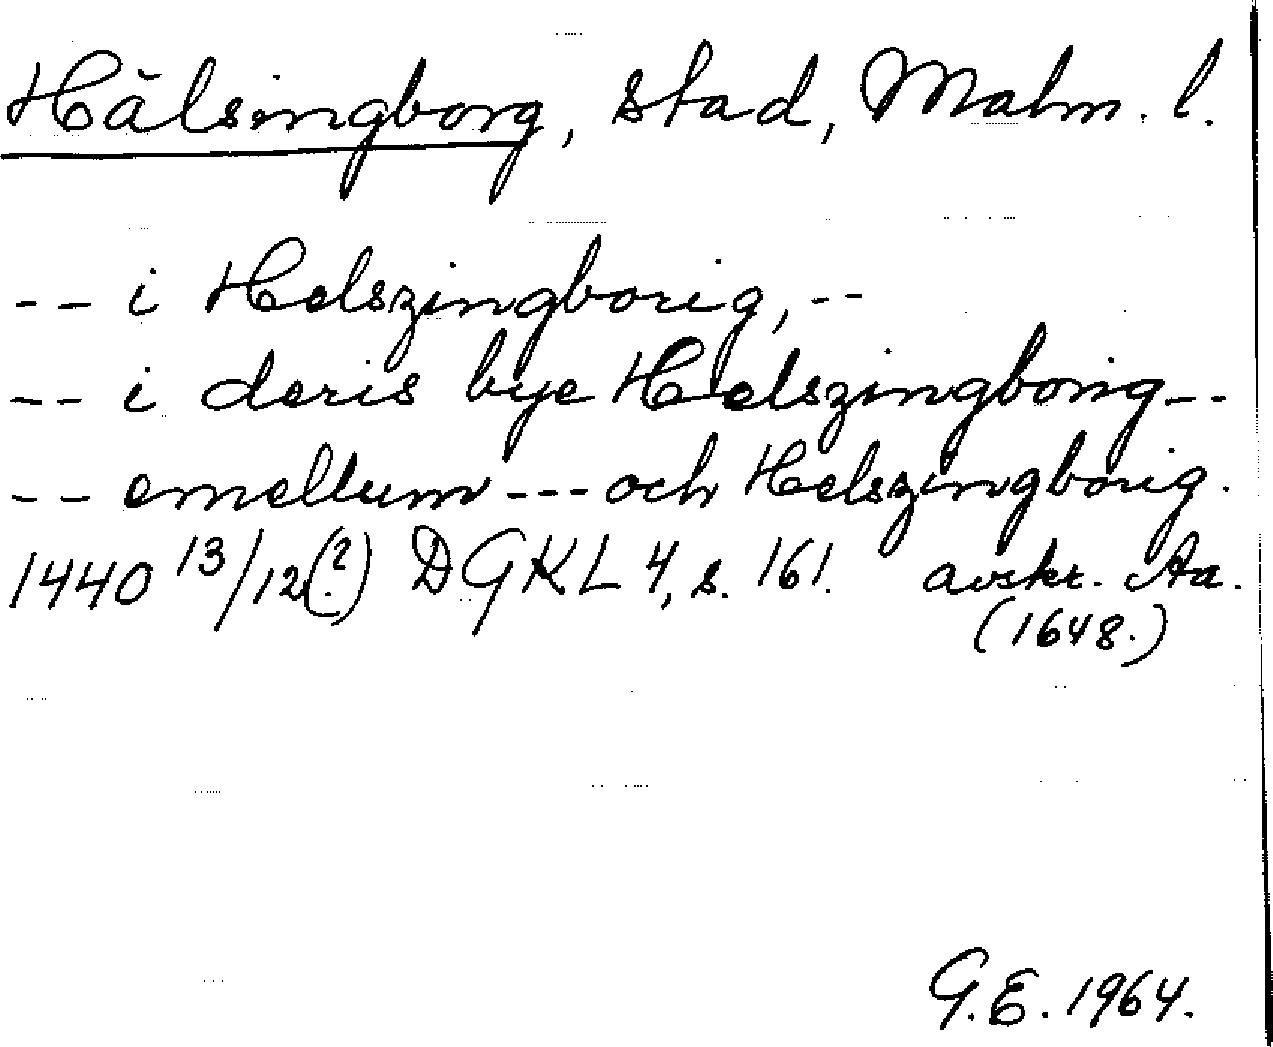 Hälsingborg, stad, Malm. l.
-- i Helszingborig, --
-- i deris bye Helszingborig --
-- emellum --- och Helszingborig.
1440 13/12(?) DGKL 4, s. 161. avskr. Aa.
(1648.)
G.E. 1964.